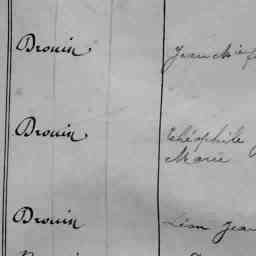 Drouin Jean M
Drouin Théophile
Marie
Drouin Léon Jean